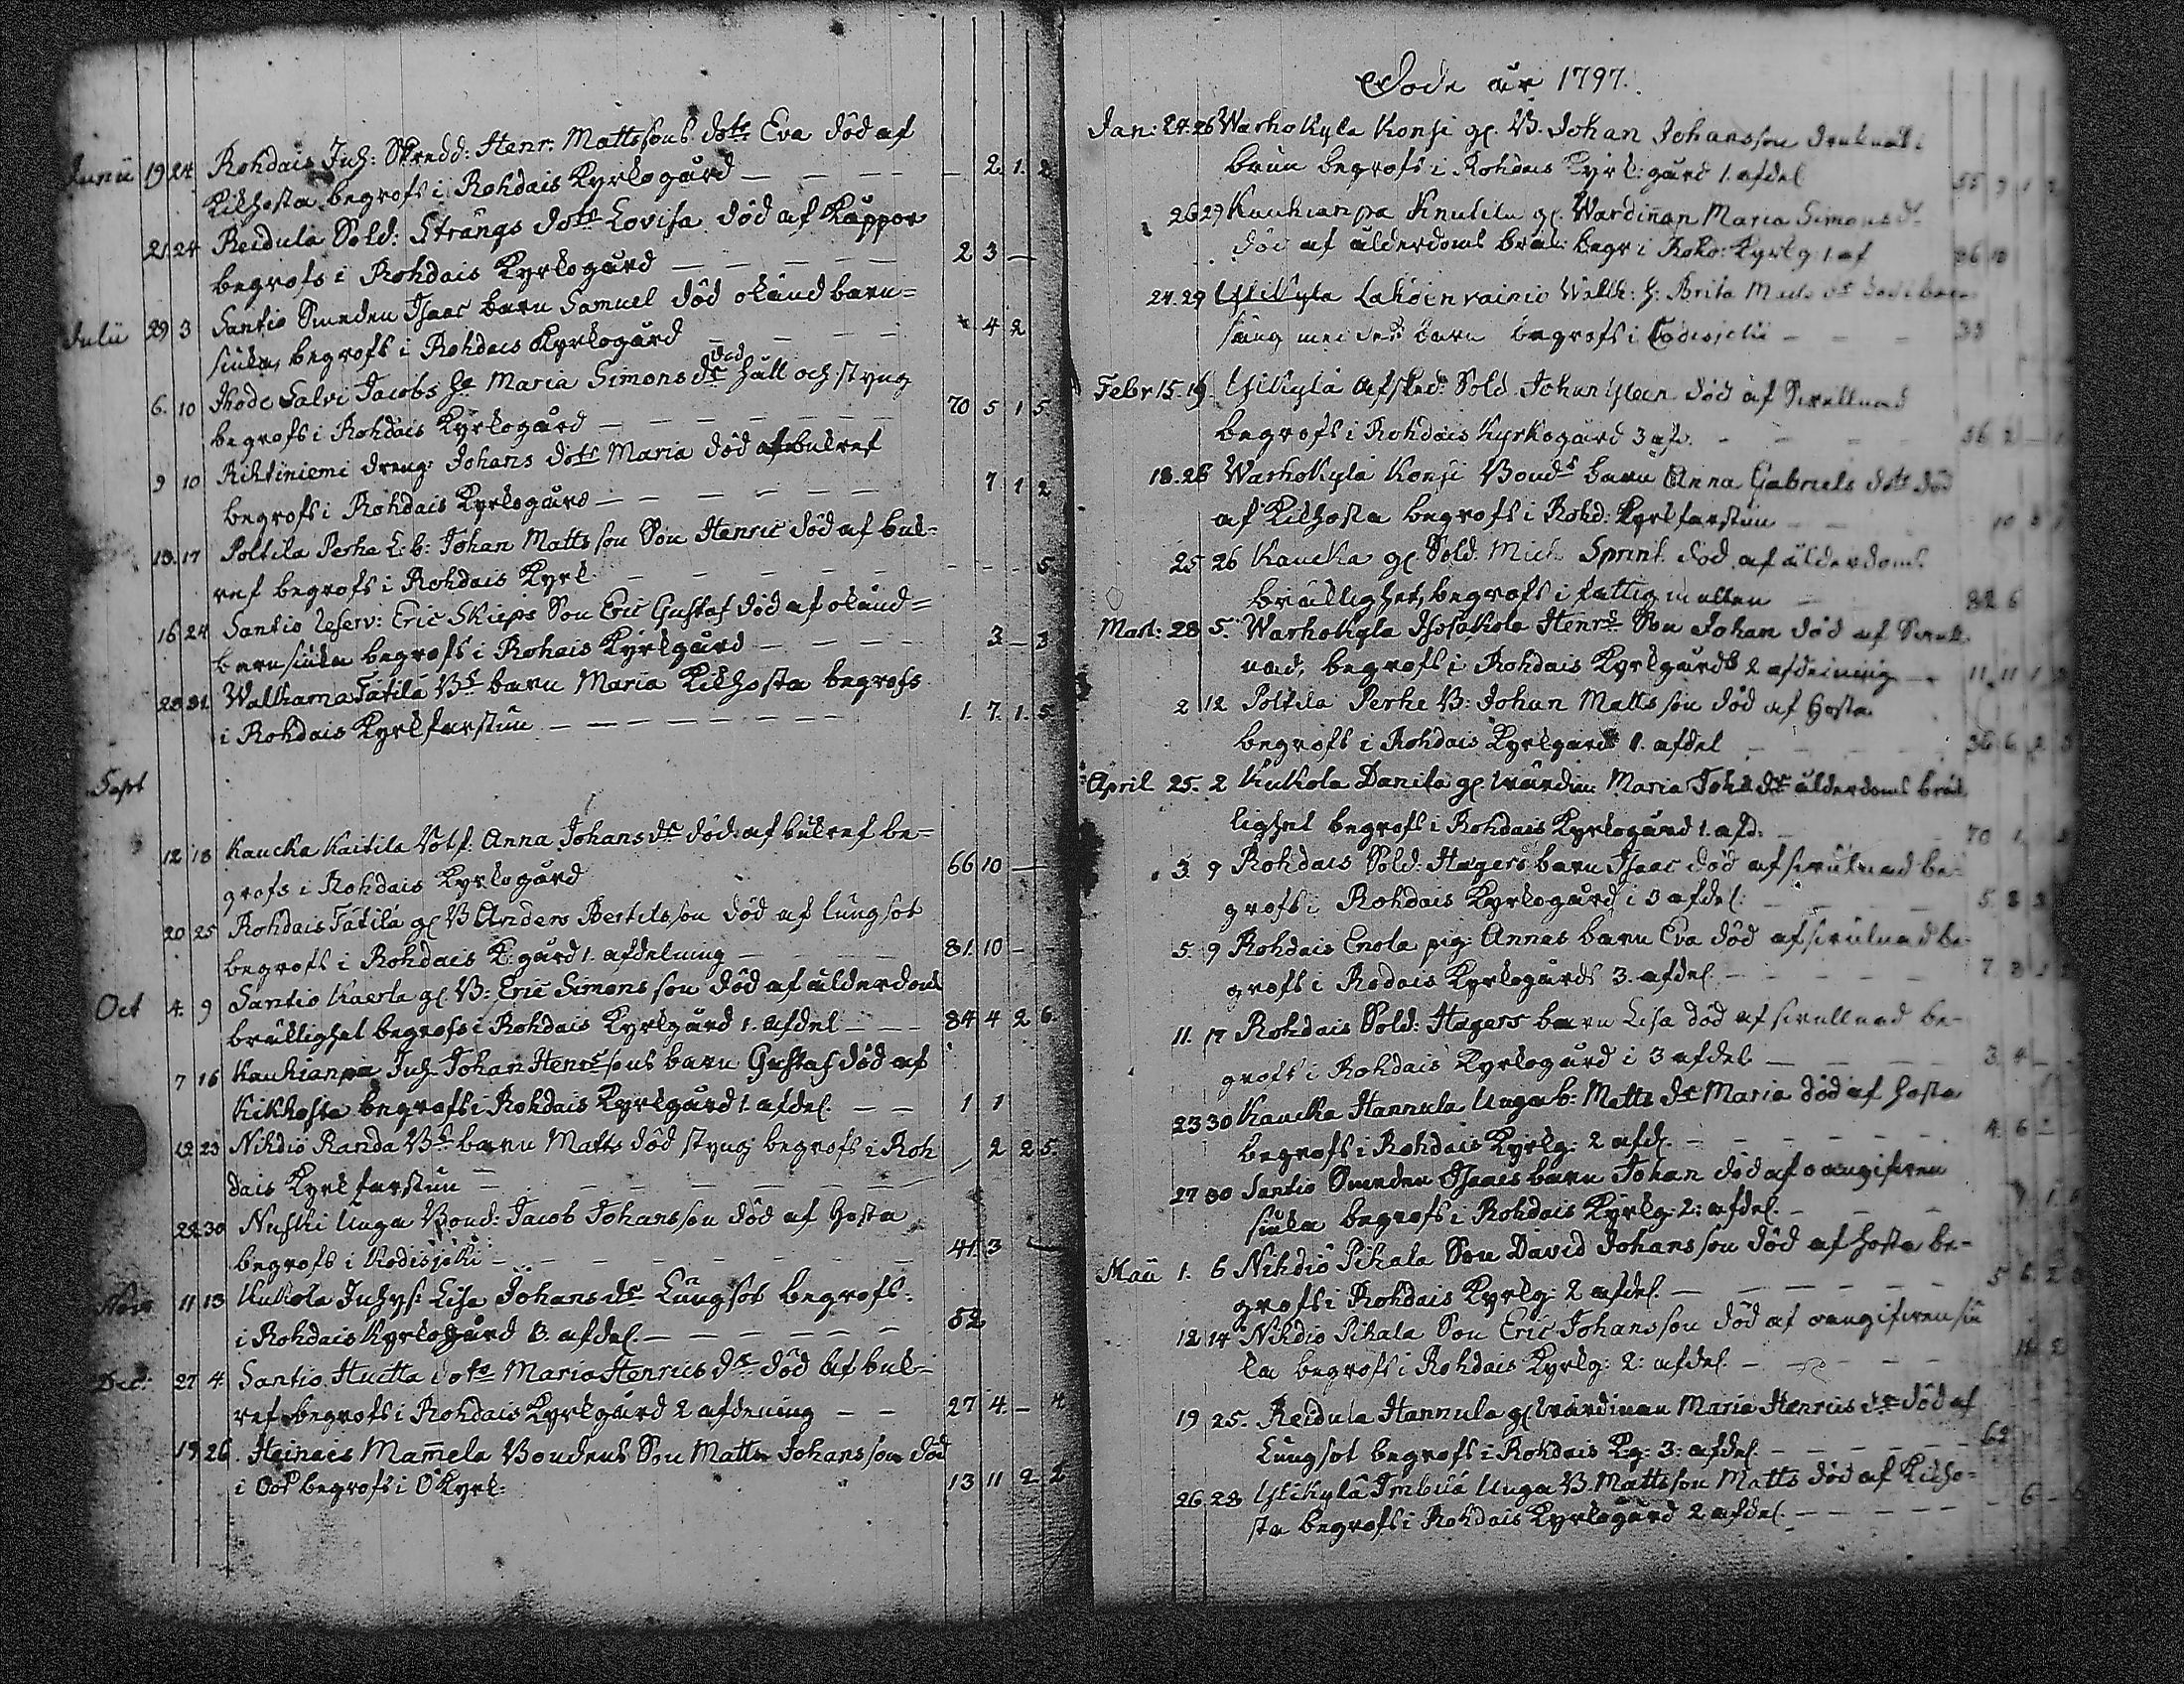 Junii 19 24 Rohdais Inh: Skredd: Henr: Mattssons dotr Eva död af
Kikhosta begrofs i Rohdais Kyrkogård — — — — 2. 1. 2
21. 24 Reidula Sold: Strångs dotr Lovisa död af Kåppor
begrofs i Rohdais Kyrkogård — — — — — 2 3 —
Julii 29 3 Santio Smeden Isaac barn Samuel död okänd barn=
siuka, begrofs i Rohdais Kyrkogård — — — — 4 2
6. 10 Ihode Salvi Jacobs he Maria Simons dr död håll och styng
begrofs i Rohdais Kyrkogård — — — — — 70 5 1 5
9 10 Rihtiniemi dreng: Johans dotr Maria död af bukref
begrofs i Rohdais Kyrkogård — — — — — 7 1 2
13. 17 Poltila Perhe L: b: Johan Matts son Son Henric död af buk=
ref begrofs i Rohdais Kyrk — — — — — 5
16 24 Santio Reserv: Eric Skieps Son Eric Gustaf död af okänd=
barnsiuka begrofs i Rohais Kyrkgård — — — — 3 — 3
28 31. Walkama Tätilä Bs barn Maria Kikhosta begrofs
i Rohdais Kyrkfarstun — — — — — — — — 1. 7. 1. 5
Sept
12 18 Kaucka Kaitila Anna Johans dr död af bukref be=
grofs i Rohdais Kyrkogård 66 10 —
20 25 Rohdais Tätilä gl B Anders Bertilsson död af lungsot
begrofs i Rohdais K: gård 1. afdelning — — — 81. 10 —
Oct 4. 9 Santio Kaerla gl. B: Eric Simons son död af ålderdoms
bräklighet begrofs i Rohdais Kyrkgård 1. afdel — — — 84 4 2 6.
7 16 Kauhianpä Inh Johan Henrssons barn Gustaf död af
Kikhosta begrofs i Rohdais Kyrkgård 1. afdel. — — 1 1
12 23 Nihdiö Randa Bs barn Matts död styng begrofs i Roh
dais Kyrkfarstun — — — — — — — — 2 2 5.
22 30 Nuhki Unga Bond: Jacob Johansson död af Hosta
begrofs i Kodisjoki — — — — — — — — 41. 3
11 13 Kukola Inhys: Lisa Johans dr Lungsot begrofs
i Rohdais Kyrkogård 3. afdel. — — — — — — 52
Dec: 27 4. Santio Huetta dotr Maria Henrics dr död af buk=
ref begrofs i Rohdais Kyrkgård 2 afdening — — 27 4. — 4
19 26. Heinais Mamela Bondens Son Matts Johansson död
i begrofs i Kyrk: 13 11 2 2
Dode år 1797.
Jan: 24. 26 Warhokyla Konsi gl. B. Johan Johansson
begrofs i Rohdais Kyrk: gård 1. afdel 55 9 1 2
26 29 Kauhianpä Knutila gl. Wardinan Maria Simons dr
död af ålderdoms bräk: begr i Rohd: Kyrkg 1. af 86 10
24. 29 Ylikyla Lahdenrainio h: Brita Matts dr
säng med des barn begrofs i Codisjoki — — — 33
Febr 15. 19. Ylikylä Afsked: Sold Johan död af Swullnad
begrofs i Rohdais Kyrkogård 3 af: — — — 56 2 — 1
18. 26 Warhokyla Konsi Bonds barn Anna Gabriels dotr död
af Kikhosta begrofs i Rohd: Kyrkfarstun — — 10 3 1
25 26 Kaucka gl. Sold. Mich Sprint död af ålderdoms
bräklighet, begrofs i fattig — — 82 6
Mart: 28 5. Warhokyla Isosakola Henrs Son Johan död af Swull
nad, begrofs i Rohdais Kyrkgårds 2 afdelning — 11 11 1 3
2 12 Poltila Perhe B: Johan Matts son död af Hosta
begrofs i Rohdais Kyrkgård 1. afdel — — — — 36 6. 2 3
April 25. 2 Kukola Danila gl. wärdin: Maria Joh: dr ålderdoms bräk
lighet begrofs i Rohdais Kyrkogård 1. afd: — 70 1. 3
3. 9 Rohdais Sold: Hagers barn Isaac död af swulnad be=
grofs i Rohdais Kyrkogård i 3 afdel: — — — — 5 8 3
5. 9 Rohdais Enola pig: Annas barn Eva död af swulnad be=
grofs i Rodais Kyrkogårds 3. afdel. — — — — 7 3 1 2
11. 17 Rohdais Sold: Hagers barn Lisa död af swullnad be=
grofs i Rohdais Kyrkogård i 3 afdel — — — — 3. 4 —
23 30 Kaucka Hannula Unga b: Matts dr Maria död af hosta
begrofs i Rohdais Kyrkg: 2 afd. — — — — — 4. 6 —
27 30 Santio Smeden Isaacs barn Johan död af oangifwen
siuka begrofs i Rohdais Kyrkg: 2: afdel. — — — 9 1 3
Maii 1. 6 Nihdiö Pihala Son David Johansson död af hosta be=
grofs i Rohdais Kyrkg: 2 afdel. — — — — — 5 6. 2 3
12 14 Nihdiö Pihala Son Eric Johansson död af oangifwen siu
ka begrofs i Rohdais Kyrkg: 2: afdel. — — — — 2
19 25. Reidula Hannula gl. Wärdinan Maria Henrics dr död af
Lungsot begrofs i Rohdais Kg: 3: afdel — — — — — 62
26 28 Ylikylä Imbua Unga B. Mattsson Matts död af Kikho=
sta begrofs i Rohdais Kyrkogård 2 afdel. — — — — — 6